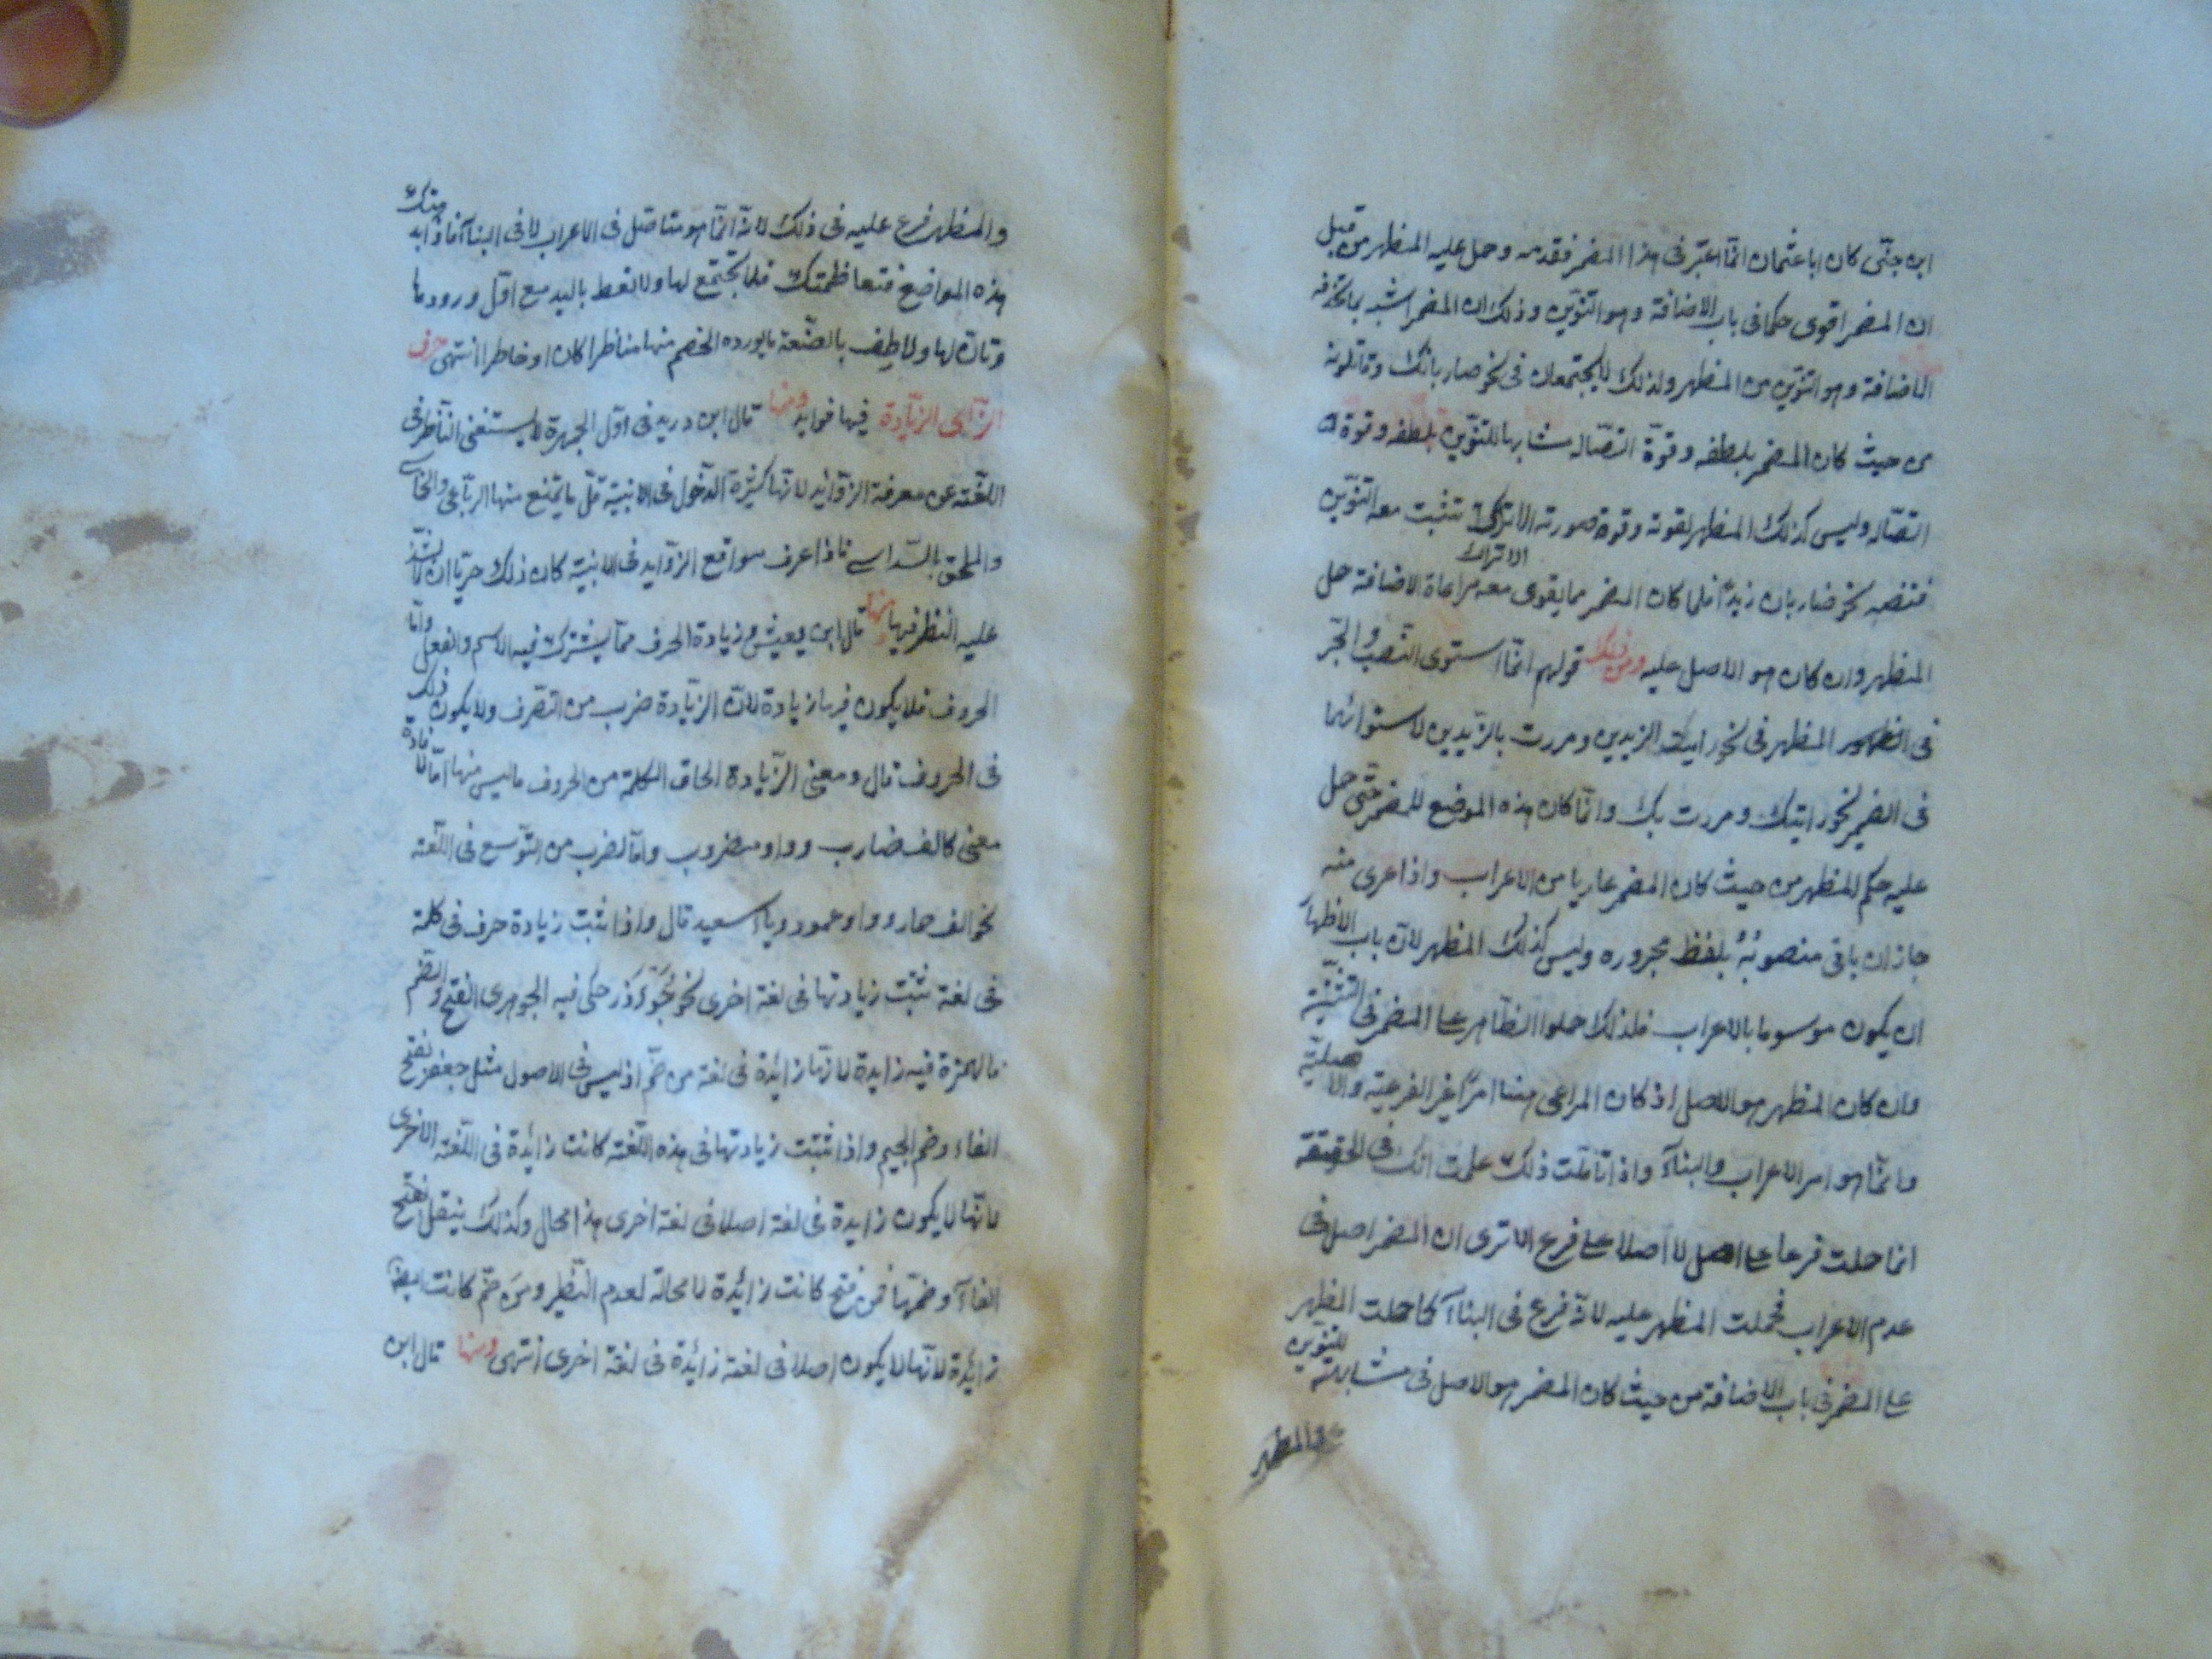 ابن جنى كان ابا عثمان انما اعتبر فى هذا المضمر فقدمه وحمل عليه المظهر من قبل
ان المضمر اقوى حكما فى باب الاضافة وهو التنوين وذلك ان المضمر اشبه بما تحذفه
الاضافة وهو التنوين من المظهر ولذلك لا يجتمعان فى نحو ضاربانك وقاتلونه
من حيث كان المضمر بلطفه وقوة اتصاله مشابها للتنوين بلطفه وقوة
اتصاله وليس كذلك المظهر لقوته وقوة صورته الا تراك تثبت معه التنوين
الا تراك
فتنصبه نحو ضاربان زيدا فلما كان المضمر مما يقوى معه مراعاة الاضافة حمل
المظهر وان كان هو الاصل عليه ومن ذلك قولهم انما استوى النصب والجر
فى المظهر فى نحو رايت الزيدين ومررت بالزيدين لاستوائهما
فى الضمير نحو رايتك ومررت بك وانما كان هذه الموضع للمضمر حتى حمل
عليه حكم المظهر من حيث كان المضمر عاريا من الاعراب واذا عرى منه
جاز ان ياتى منصوبه بلفظ مجروره وليس كذلك المظهر لان باب الاظهار
ان يكون موسوما بالاعراب فلذلك حملوا الظاهر على المضمر فى التثنية
وان كان المظهر هو الاصل اذ كان المراعى هنا امرا غير الفرعية والاصلية
وانما هو امر الاعراب والبناء واذا تاملت ذلك علمت انك فى الحقيقة
انما حملت فرعا على اصل لا اصلا على فرع الا ترى ان المضمر اصل فى
عدم الاعراب فحملت المظهر عليه لانه فرع فى البناء كما حملت المظهر
على المضمر فى باب الاضافة من حيث كان المضمر هو الاصل فى مشابهته للتنوين
والمظهر
والمظهر فرع عليه فى ذلك لانه انما هو متاصل فى الاعراب لا فى البناء فاذا بدهتك
هذه المواضع فتعاظمتك فلا تخنع لها ولا تعط باليد مع اول ورودها
وتأن لها ولاطف بالصنعة ما يورده الخصم منها مناظرا كان او خاطرا انتهى حرف
الزاى الزيادة فيها فوايد ومنها قال ابن دريد فى اول الجمهرة لا يستغنى الناظر فى
اللغة عن معرفة الزوائد لانها كثيرة الدخول فى الابنية قل ما يمتنع منها الرباعى والخماسى
والملحق بالسداسى فاذا عرف مواقع الزوايد فى الابنية كان ذلك حريا ان لا يشذ
عليه النظر فيها ومنها قال ابن يعيش زيادة الحرف مما يشترك فيه الاسم والفعل واما
الحروف فلا يكون فيها زيادة لان الزيادة ضرب من التصرف ولا يكون ذلك
فى الحروف قال ومعنى الزيادة الحاق الكلمة من الحروف ما ليس منها اما لافادة
معنى كالف ضارب وواو مضروب واما لضرب من التوسع فى اللغة
نحو الف حمار وواو عمود وياء سعيد قال واذا ثبت زيادة حرف فى كلمة
فى لغة ثبت زيادتها فى لغة اخرى نحو جؤذر حكى فيه الجوهرى الفتح والضم
فالهمزة فيه زايدة لانها زائدة فى لغة من ضم اذ ليس فى الاصول مثل جعفر بفتح
الفاء وضم الجيم واذا ثبتت زيادتها فى هذه اللغة كانت زائدة فى اللغة الاخرى
لانها لا يكون زايدة فى لغة اصلا فى لغة اخرى هذا محال وكذلك تتفل بفتح
الفاء وضمها فمن فتح كانت زائدة لا محالة لعدم النظير ومن ضم كانت ايضا
زائدة لانها لا يكون اصلا فى لغة زائدة فى لغة اخرى انتهى ومنها قال ابن